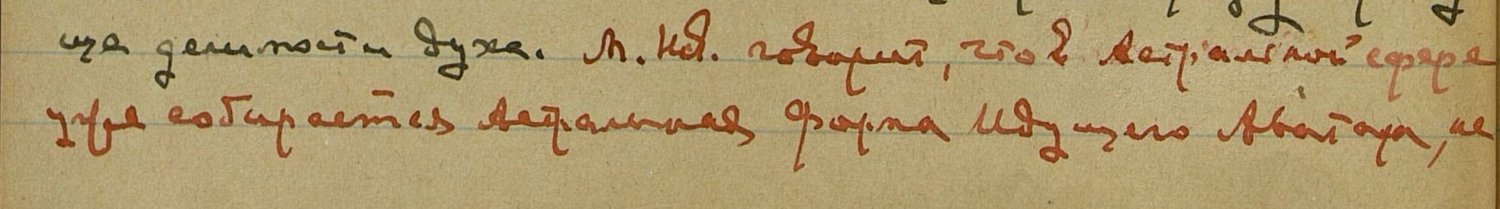 ще делимости духа. М. Ив. говорит, что в Астральной сфере
уже собирается Астральная форма Идущего Аватара, не